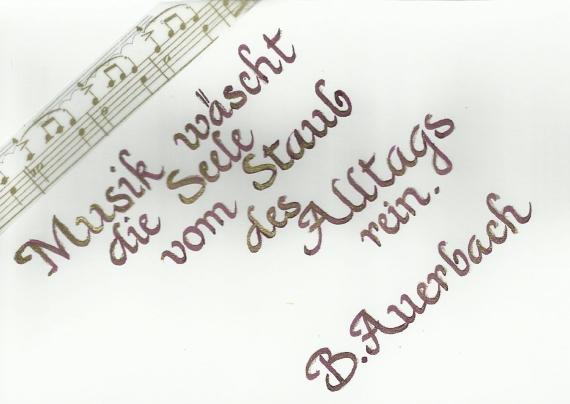 Musik wäscht
die Seele
vom Staub
des Alltags
rein.
B. Auerbach